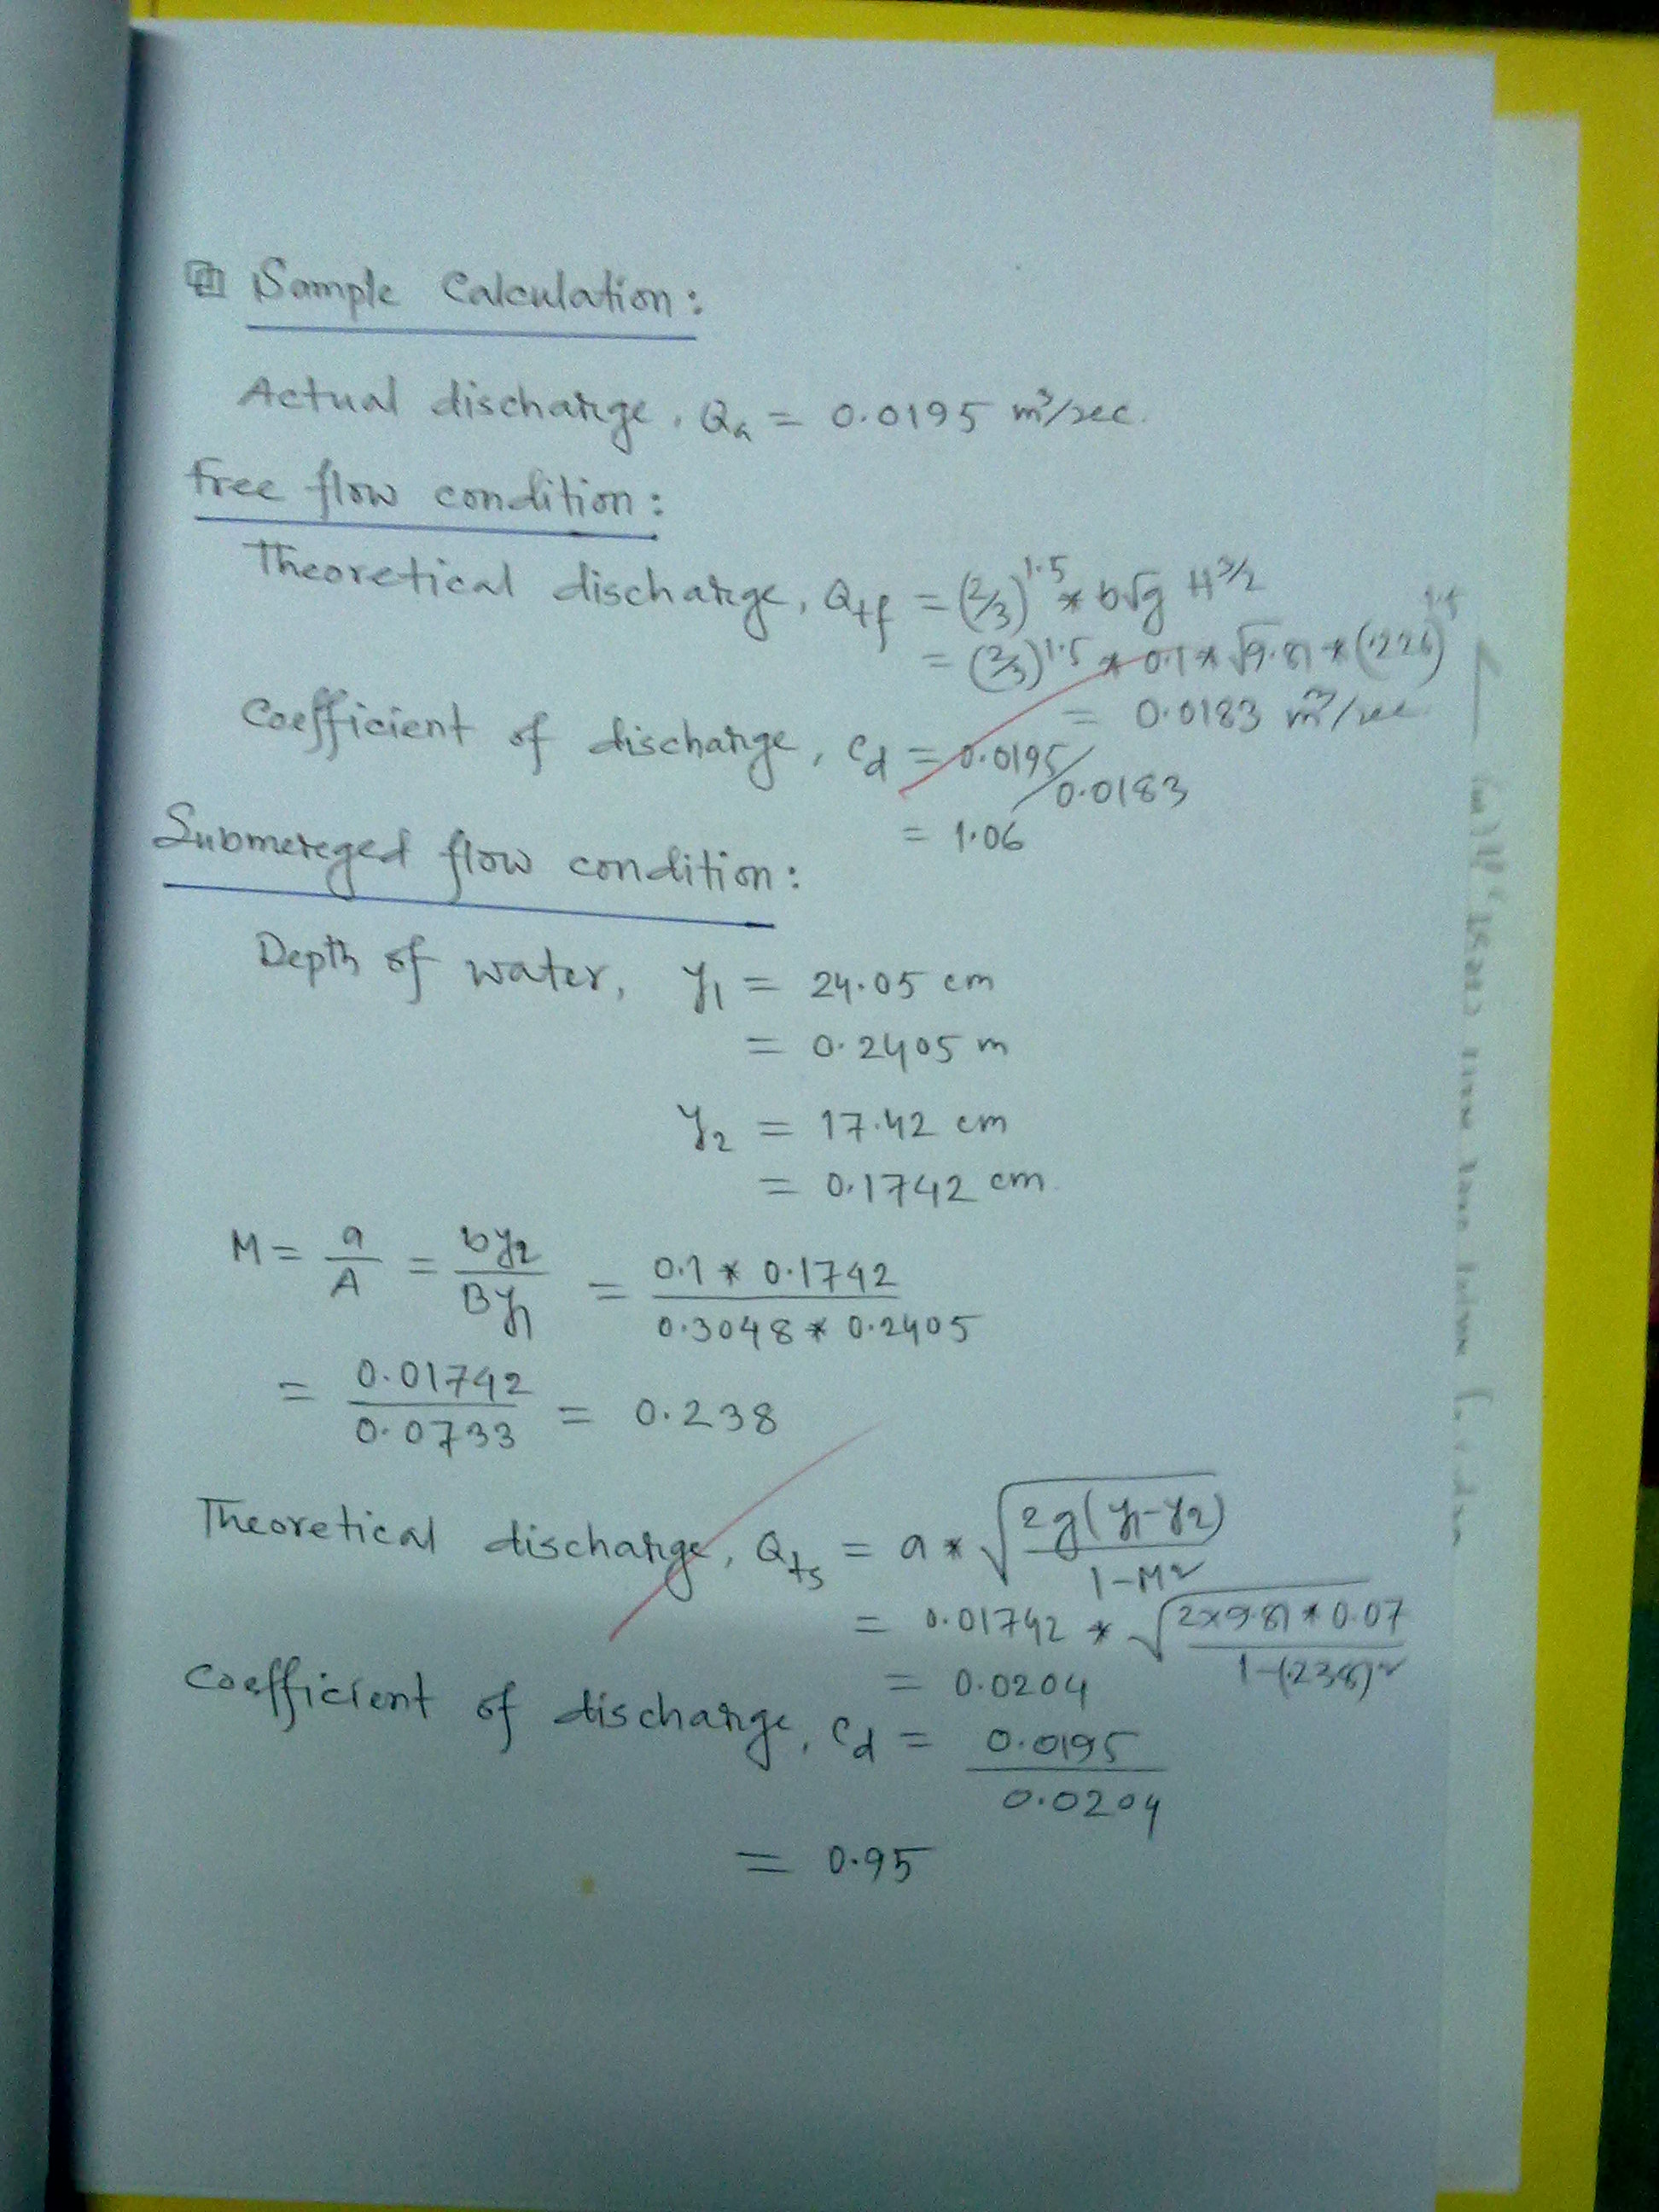 Sample Calculation:
Actual discharge, Qa = 0.0195 m³/sec.
Free flow condition:
Theoretical discharge, Qtf = (2/3)^1.5 * b√g H^3/2
= (2/3)^1.5 * 0.1 * √9.81 * (.226)^1.5
= 0.0183 m³/sec
Coefficient of discharge, Cd = 0.0195/0.0183
= 1.06
Submereged flow condition:
Depth of water, y1 = 24.05 cm
= 0.2405 m
y2 = 17.42 cm
= 0.1742 cm
M = a/A = by2/By1 = 0.1 * 0.1742 / 0.3048 * 0.2405
= 0.01742/0.0733 = 0.238
Theoretical discharge, Qts = a * √(2g(y1-y2)/1-M²)
= 0.01742 * √(2×9.81 * 0.07/1-(.238)²)
= 0.0204
Coefficient of discharge, Cd = 0.0195/0.0204
= 0.95